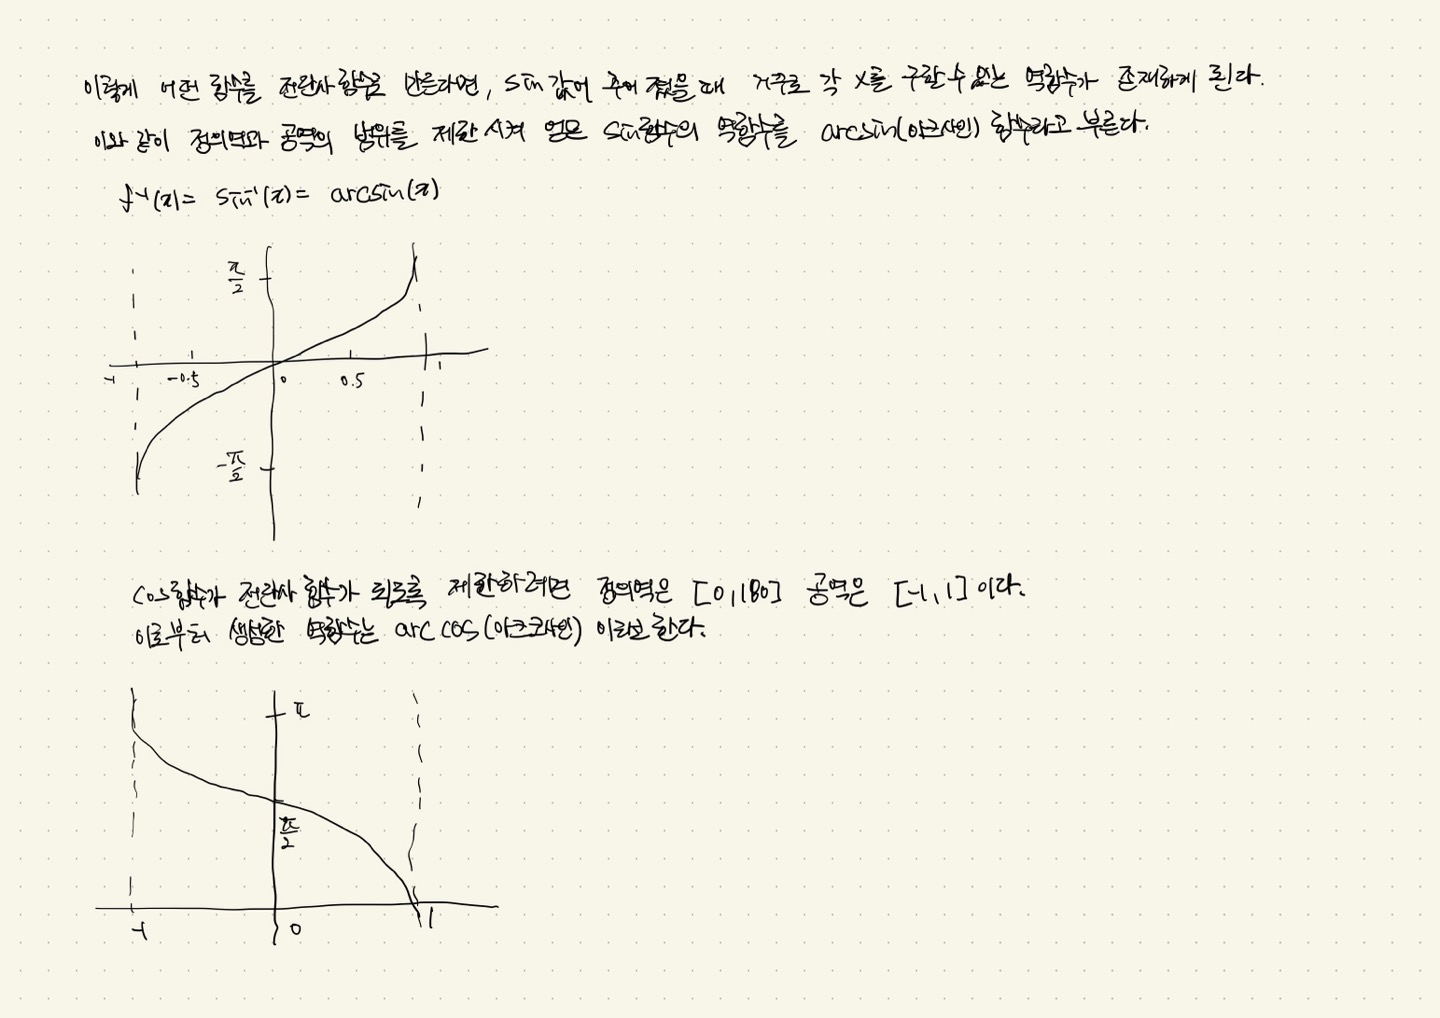 이렇게 어떤 함수를 전단사함수로 만든다면, sin 값이 주어 졌을 때 거꾸로 각 x를 구할 수 있는 역함수가 존재하게 된다.
이와 같이 정의역과 공역의 범위를 제한 시켜 얻은 sin함수의 역함수를 arcsin(아크사인) 함수라고 부른다.
f⁻¹(x)= sin⁻¹(x)= arcsin(x)
π/2
-1 -0.5 0 0.5 1
-π/2
cos함수가 전단사 함수가 되도록 제한하려면 정의역은 [0,180] 공역은 [-1,1] 이다.
이로부터 생성한 역함수는 arc cos(아크코사인) 이라고 한다.
π
π/2
-1 0 1